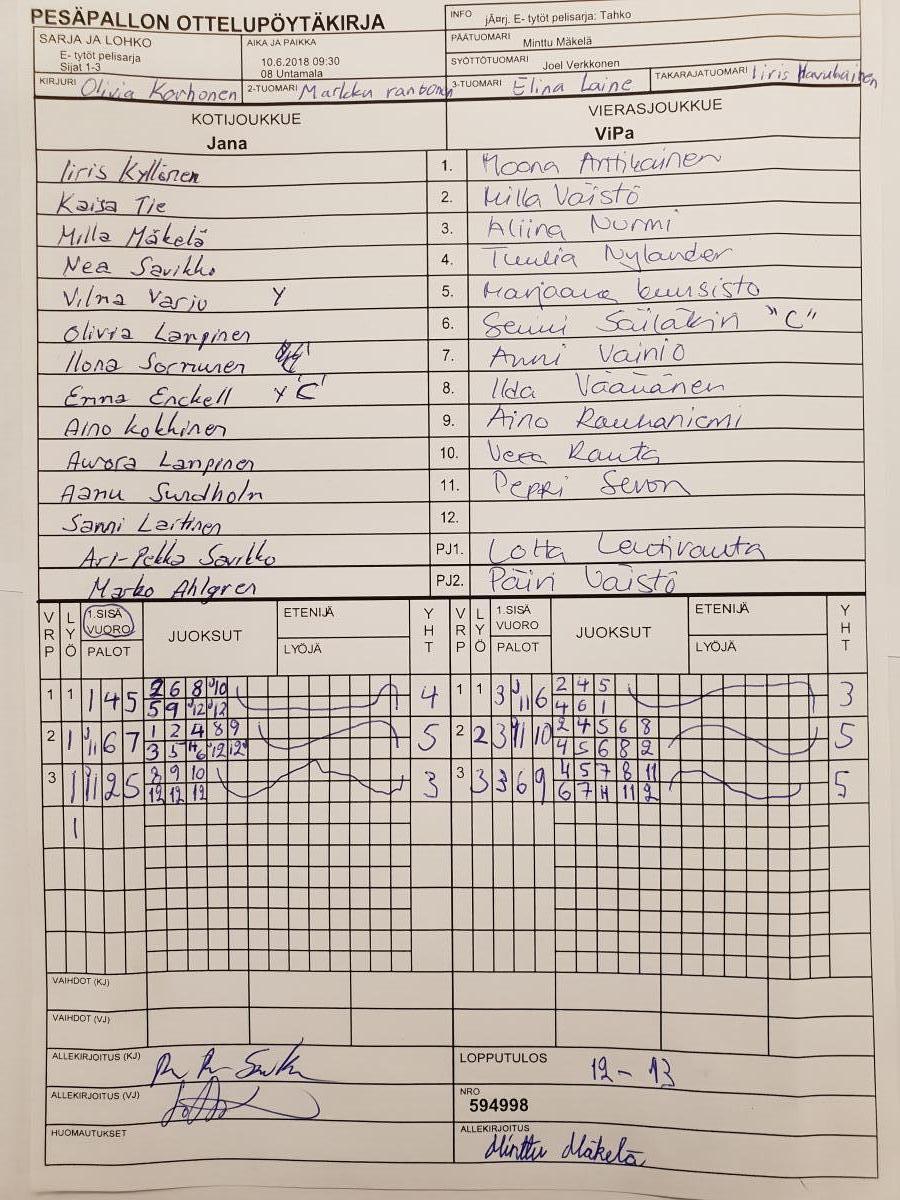 PESÄPALLON OTTELUPÖYTÄKIRJA
INFO jÃ¤rj. E- tytöt pelisarja: Tahko
SARJA JA LOHKO
E- tytöt pelisarja
Sijat 1-3
AIKA JA PAIKKA
10.6.2018 09:30
08 Untamala
PÄÄTUOMARI Minttu Mäkelä
SYÖTTÖTUOMARI Joel Verkkonen
KIRJURI Olivia Korhonen
2-TUOMARI Markku
3-TUOMARI Elina Laine
TAKARAJATUOMARI Iiris
KOTIJOUKKUE
Jana
VIERASJOUKKUE
ViPa
Iiris Kyllönen 1. Moona Anttikainen
Kaisa Tie 2. Milla Väistö
Milla Mäkelä 3. Aliina Nurmi
Nea Savikko 4. Tuulia Nylander
Vilma Varjo Y 5. Marjaana Kuusisto
Olivia Lampinen 6. Senni Säiläkin "C"
Ilona Sormunen 7. Anni Vainio
Emma Enckell Y 'C' 8. Ilda Väänänen
Aino Kokkinen 9. Aino Rauhaniemi
Aurora Lampinen 10. Veera Rauta
Aanu Sundholm 11. Peppi Sevon
Sanni Laitinen 12.
Ari-Pekka Savikko PJ1. Lotta Lautirauta
Marko Ahlgren PJ2. Päivi Väistö
VRP LYÖ 1.SISÄ VUORO PALOT JUOKSUT ETENIJÄ LYÖJÄ YHT VRP LYÖ 1.SISÄ VUORO PALOT JUOKSUT ETENIJÄ LYÖJÄ YHT
1 1 1 4 5 2 6 8 10 4 1 1 3 11 6 2 4 5 3
5 9 12 12 4 6 1
2 1 11 6 7 1 2 4 8 9 5 2 2 3 9 11 10 2 4 5 6 8 5
3 5 6 12 12 4 5 6 8 2
3 1 11 2 5 8 9 10 3 3 3 3 6 9 4 5 7 8 11 5
12 12 12 6 7 11 11 2
1
VAIHDOT (KJ)
VAIHDOT (VJ)
ALLEKIRJOITUS (KJ)
LOPPUTULOS 12 - 13
ALLEKIRJOITUS (VJ)
NRO
594998
HUOMAUTUKSET
ALLEKIRJOITUS
Minttu Mäkelä